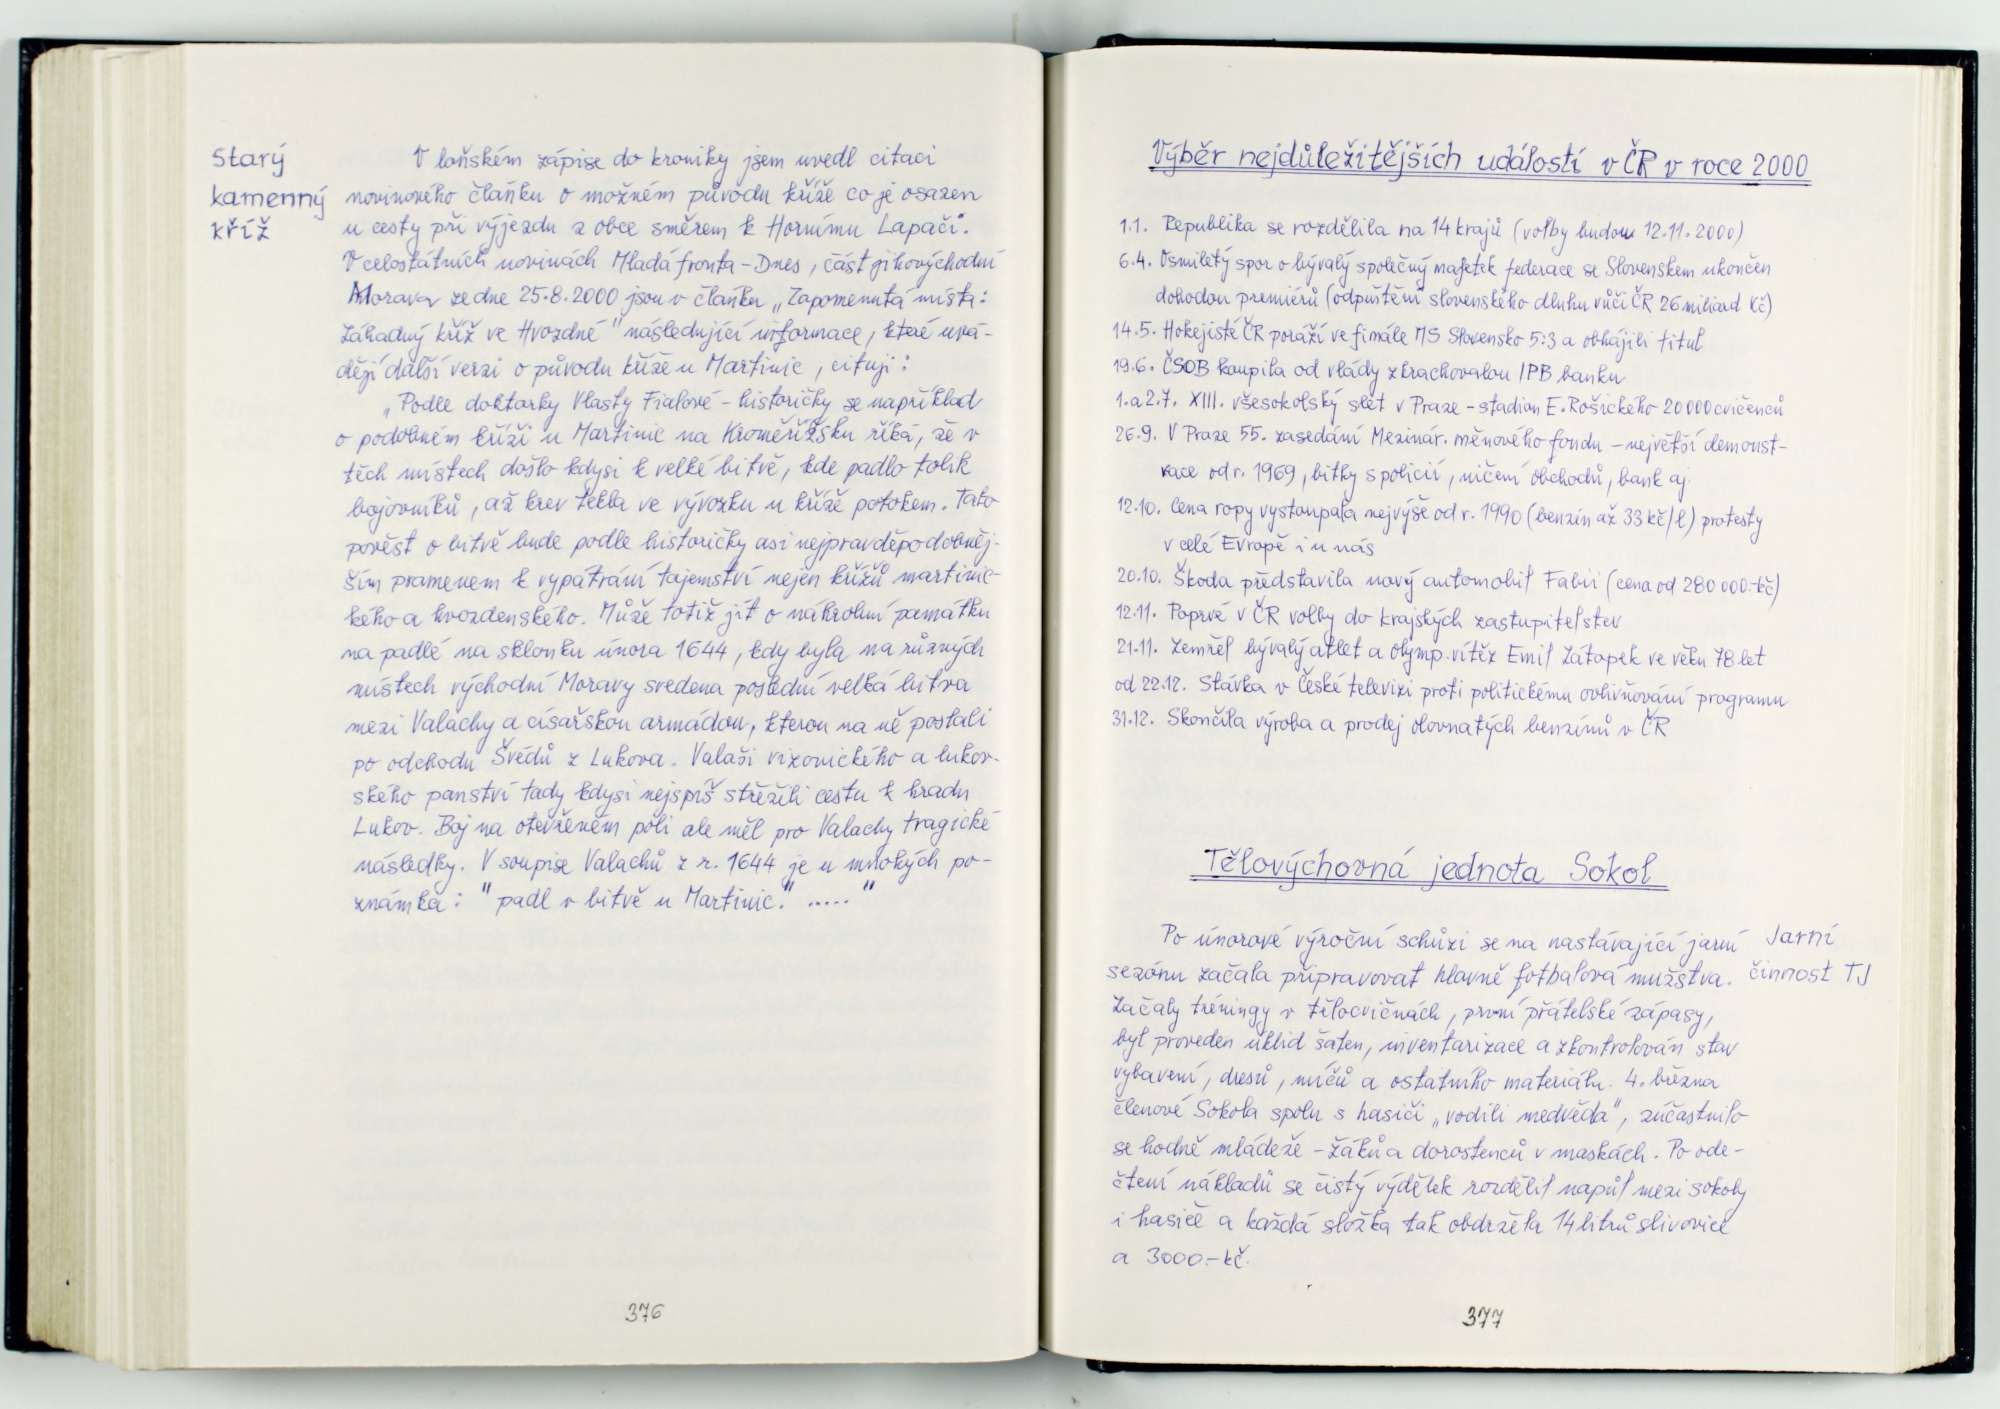 Starý
kamenný
kříž
V loňském zápise do kroniky jsem uvedl citaci
novinového článku o možném původu kříže co je osazen
u cesty při výjezdu z obce směrem k Hornímu Lapači.
V celostátních novinách Mladá fronta - Dnes, část jihovýchodní
Morava ze dne 25.8.2000 jsou v článku „Zapomenutá místa:
Záhadný kříž ve Hvozdné" následující informace, které uvá-
dějí další verzi o původu kříže u Martinic, cituji:
„Podle doktorky Vlasty Fialové - historičky se například
o podobném kříži u Martinic na Kroměřížsku říká, že v
těch místech došlo kdysi k velké bitvě, kde padlo tolik
bojovníků, až krev tekla ve vývozku u kříže potokem. Tato
pověst o bitvě bude podle historičky asi nejpravděpodobněj-
ším pramenem k vypátrání tajemství nejen křížů martinic-
kého a hvozdenského. Může totiž jít o náhrobní památku
na padlé na sklonku února 1644, kdy byla na různých
místech východní Moravy svedena poslední velká bitva
mezi Valachy a císařskou armádou, kterou na ně poslali
po odchodu Švédů z Lukova. Valaši vizovického a lukov-
ského panství tady kdysi nejspíš střežili cestu k hradu
Lukov. Boj na otevřeném poli ale měl pro Valachy tragické
následky. V soupise Valachů z r. 1644 je u mnohých po-
známka: "padl v bitvě u Martinic." ....."
376
Výběr nejdůležitějších událostí v ČR v roce 2000
1.1. Republika se rozdělila na 14 krajů (volby budou 12.11.2000)
6.4. Osmiletý spor o bývalý společný majetek federace se Slovenskem ukončen
dohodou premiérů (odpuštění slovenského dluhu vůči ČR 26 miliard Kč)
14.5. Hokejisté ČR poráží ve finále MS Slovensko 5:3 a obhájili titul
19.6. ČSOB koupila od vlády zkrachovalou IPB banku
1. a 2.7. XIII. všesokolský slet v Praze - stadion E. Rošického 20 000 cvičenců
26.9. V Praze 55. zasedání Mezinár. měnového fondu - největší demonst-
race od r. 1969, bitky s policií, ničení obchodů, bank aj.
12.10. Cena ropy vystoupala nejvýše od r. 1990 (benzín až 33 kč/l) protesty
v celé Evropě i u nás
20.10. Škoda představila nový automobil Fabii (cena od 280 000.-kč)
12.11. Poprvé v ČR volby do krajských zastupitelstev
21.11. Zemřel bývalý atlet a olymp. vítěz Emil Zátopek ve věku 78 let
od 22.12. Stávka v České televizi proti politickému ovlivňování programu
31.12. Skončila výroba a prodej olovnatých benzínů v ČR
Tělovýchovná jednota Sokol
Jarní
činnost TJ
Po únorové výroční schůzi se na nastávající jarní
sezónu začala připravovat hlavně fotbalová mužstva.
Začaly tréningy v tělocvičnách, první přátelské zápasy,
byl proveden úklid šaten, inventarizace a zkontrolován stav
vybavení, dresů, míčů a ostatního materiálu. 4. března
členové Sokola spolu s hasiči „vodili medvěda", zúčastnilo
se hodně mládeže - žáků a dorostenců v maskách. Po ode-
čtení nákladů se čistý výdělek rozdělil napůl mezi sokoly
i hasiče a každá složka tak obdržela 14 litrů slivovice
a 3000.- kč.
377